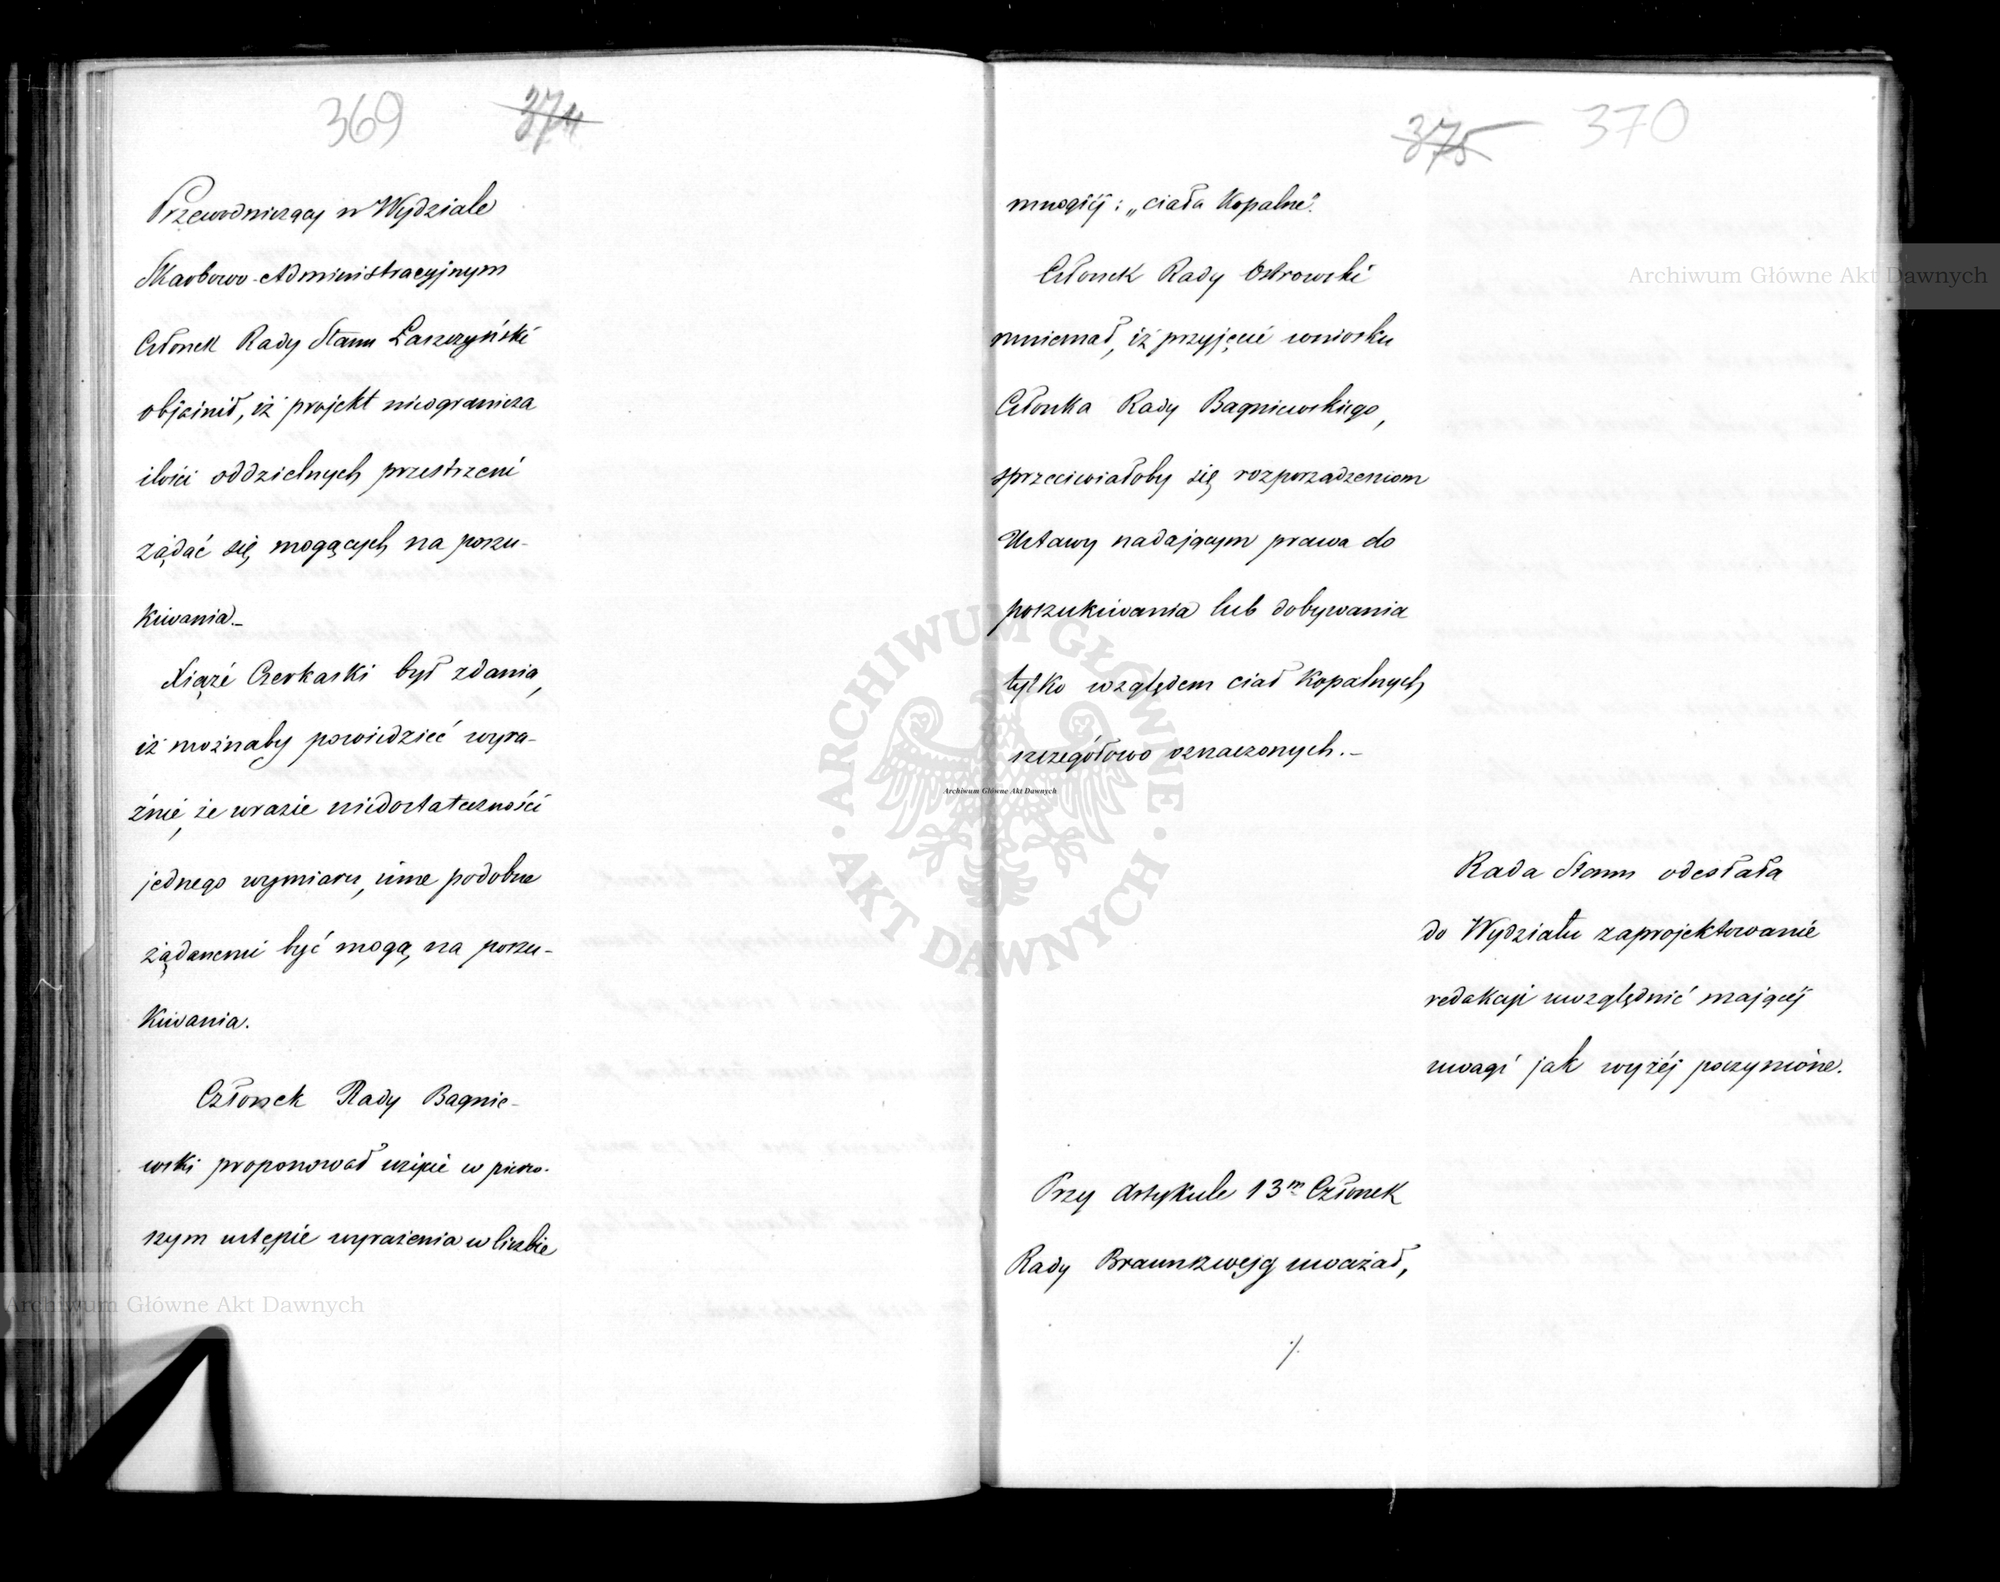 369 374
Przewodniczący w Wydziale
Skarbowo-Administracyjnym
Członek Rady Stanu Łaszczyński
objaśnił, iż projekt nieogranicza
ilości oddzielnych przestrzeni
żądać się mogących na poszu-
kiwania.–
Xiąże Czerkaski był zdania,
iż możnaby powiedzieć wyra-
źnie, że wrazie niedostateczności
jednego wymiaru, inne podobne
żądanemi być mogą, na poszu-
kiwania.
Członek Rady Bagnie-
wski proponował użycie w pierw-
szym ustępie wyrażenia w liczbie
375 370
mnogiéj: „ciała kopalne".
Członek Rady Ostrowski
mniemał, iż przyjęcie wniosku
Członka Rady Bagniewskiego,
sprzeciwiałoby się rozporządzeniom
Ustawy nadającym prawa do
poszukiwania lub dobywania
tylko względem ciał kopalnych
szczegółowo oznaczonych.–
Rada Stanu odesłała
do Wydziału zaprojektowanie
redakcyi uwzględnić mającéj
uwagi jak wyżéj poczynione.
Przy Artykule 13m Członek
Rady Braunszwejg uważał,
./.
Archiwum Główne Akt Dawnych
Archiwum Główne Akt Dawnych
Archiwum Główne Akt Dawnych
ARCHIWUM GŁÓWNE AKT DAWNYCH